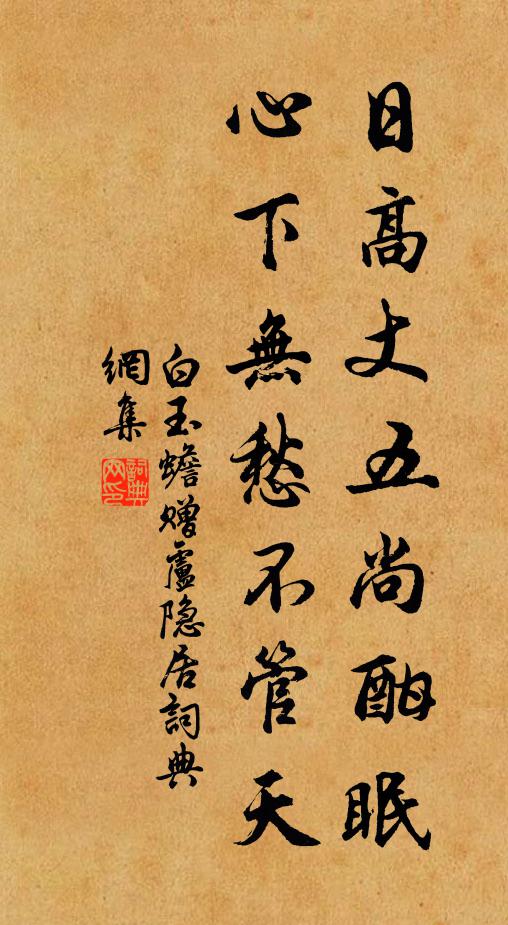 日高丈五尚酣眠
心下無愁不管天
白玉蟾贈廬隐居詞典
網集
詞典
网印